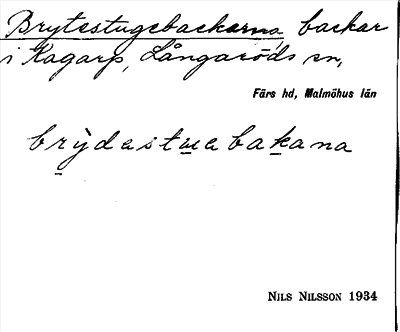 Brytestugebackarna, backar
i Kagarp, Långaröds sn,
Färs hd, Malmöhus län
brỳdastuebakana
NILS NILSSON 1934